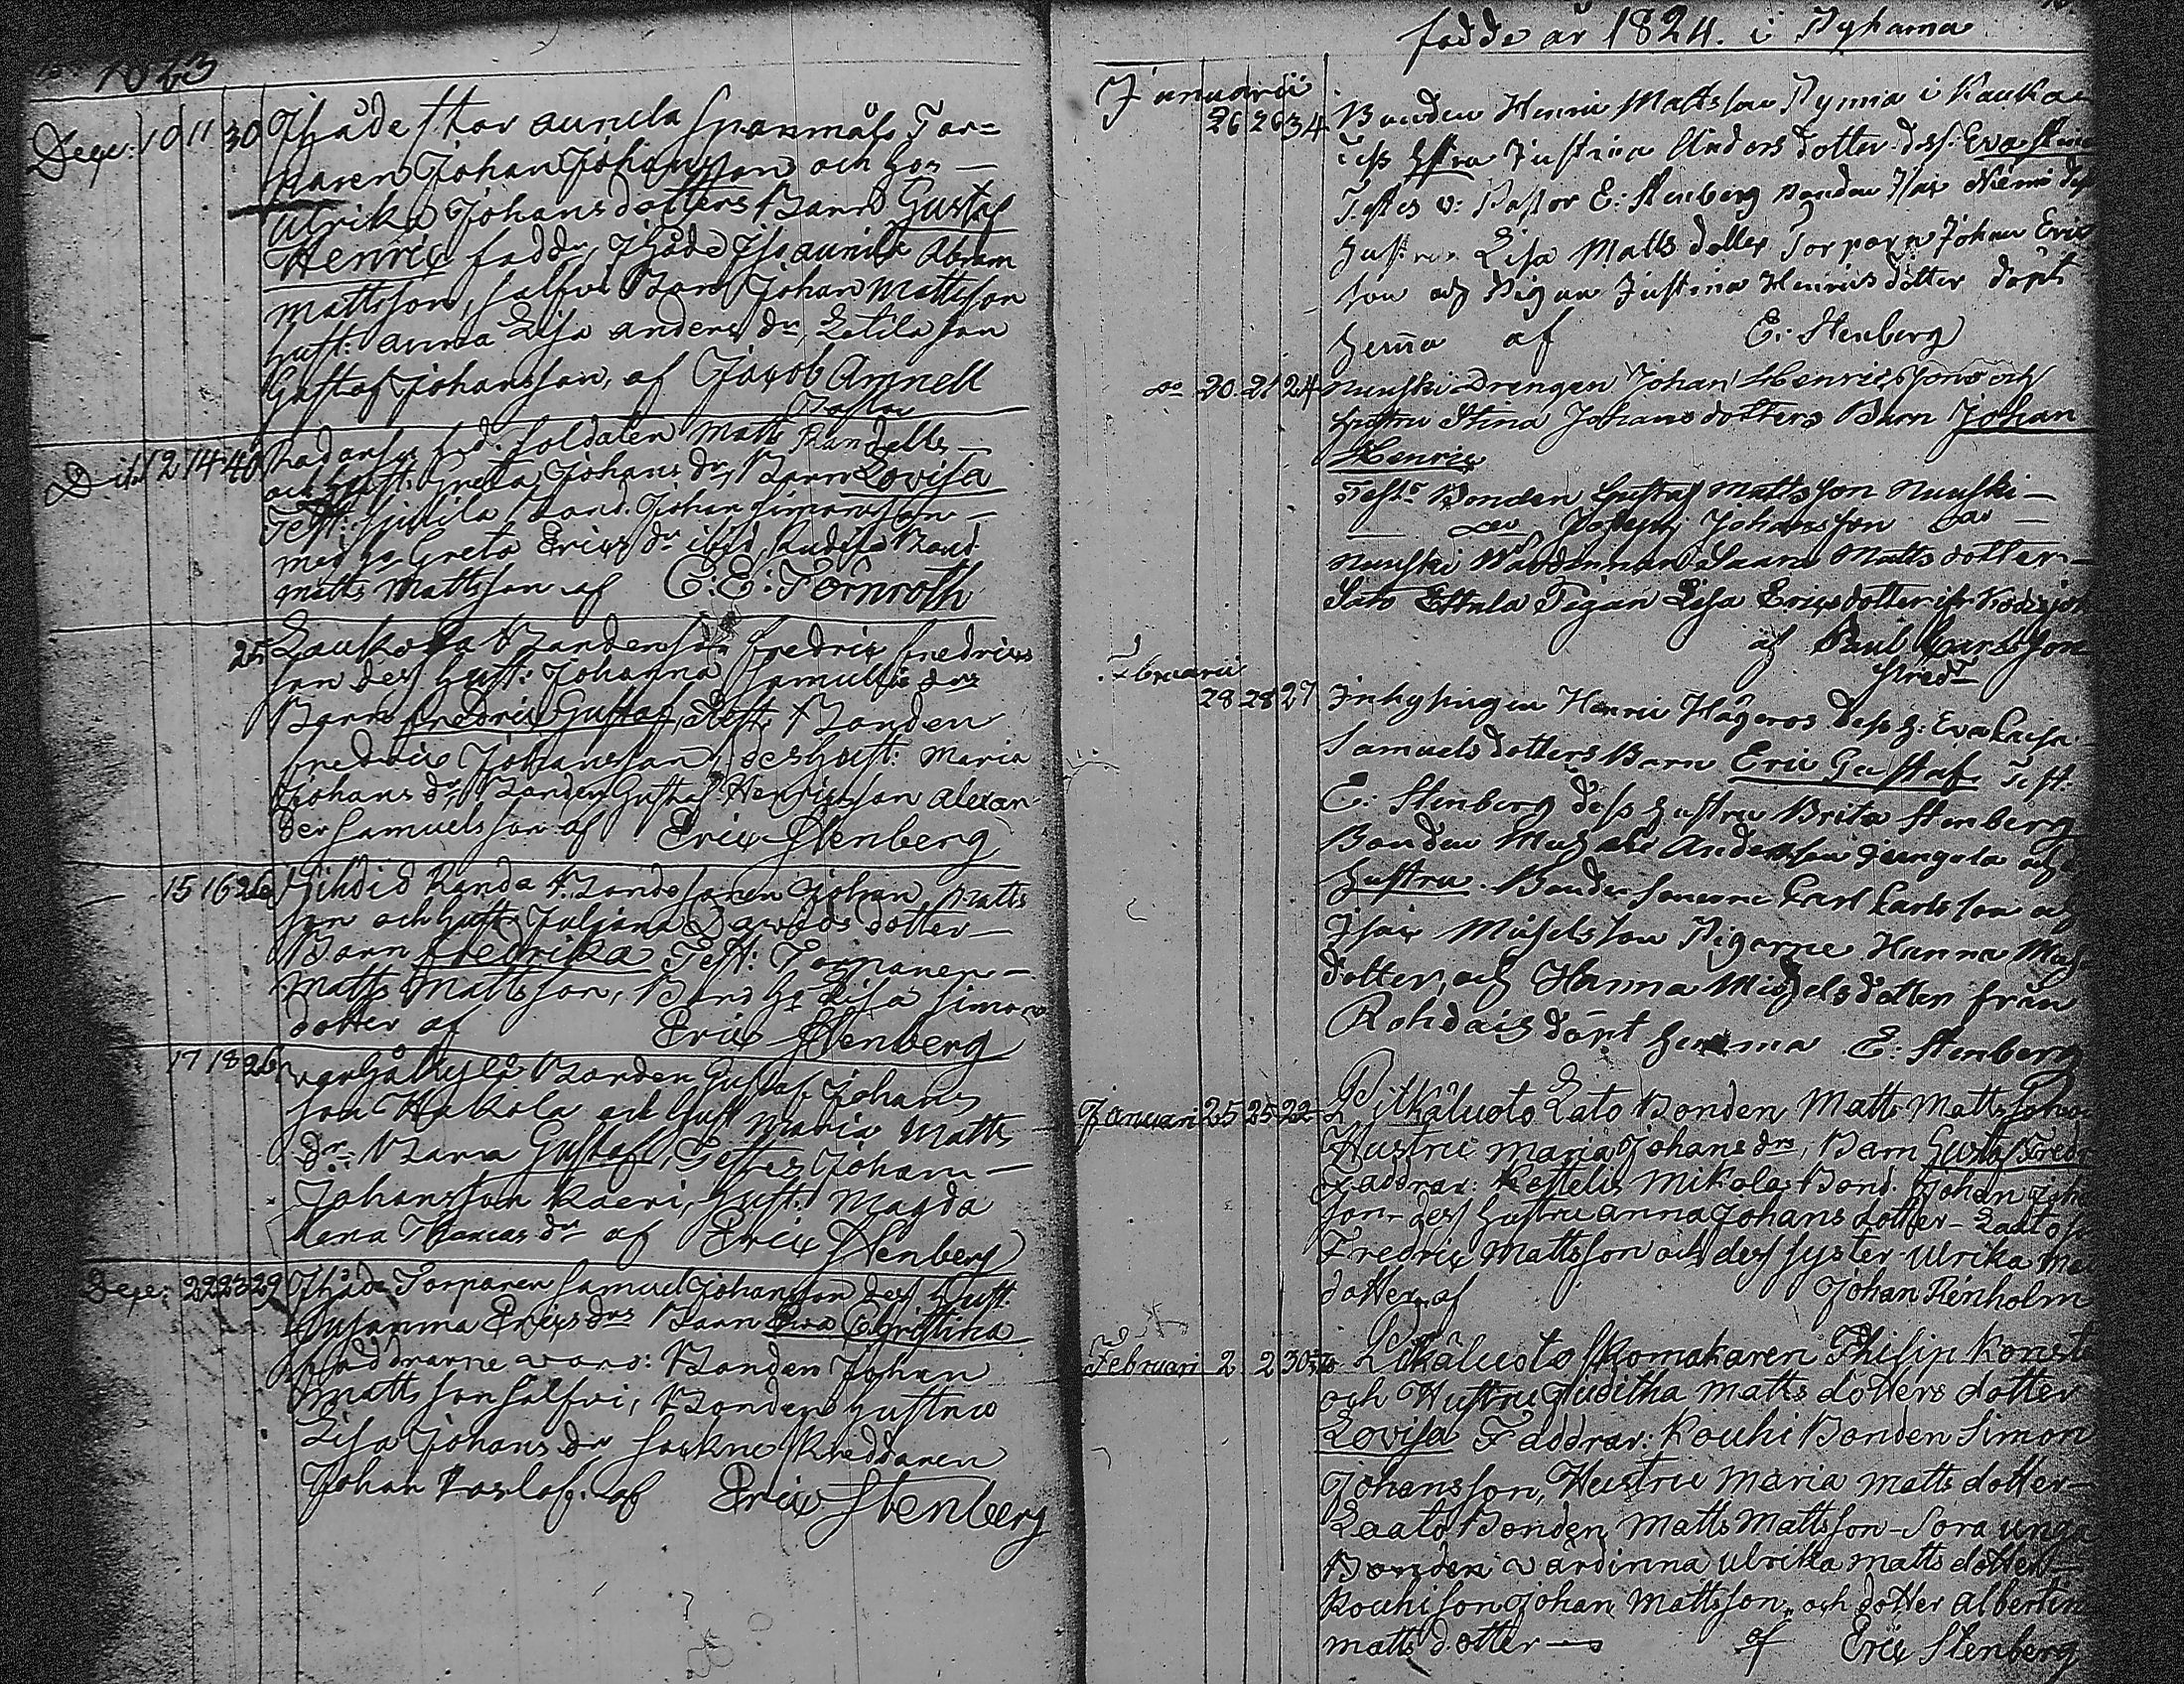 1823
Dece: 10 11 30 Ihåde Stor aunela Spanmåls Tor=
paren Johan Johansson och hos —
Ulrika Johansdotters Barn Gustaf
Henric faddr, Ihåde Iso aunila Abram
Mattsson, Salfvi Bond Johan Mattsson
hust: Anna Lisa anders dr Lotila son
Gustaf Johansson, af Jacob Amnell
Pastor
Dito 12 14 40 soldaten Matts Randells
och hust. Greta Johans dr, Barn Lovisa
Test: Bond. Johan Simonsson —
med Greta Erics dr ibid, Bond.
Matts Mattsson af C: E: Törnroth
25 Laukola Bonden Fredric Fredrics
son dess hust: Johanna Samuels drs
Barn Fredric Gustaf, Test. Bonden
Fredric Johansson, dess hust: Maria
Johans dr, Bonden Gustaf Henricsson Alexan
der Samuelsson af Eric Stenberg
15 16 26 Randa Bonde sonen Johan Matts
son och hust. Juliana Davids dotter —
Barn Fredrika Test: Torparen —
Matts Mattsson, Bond hu Lisa Simons
dotter af Eric Stenberg
17 18 26 Bonden Gustaf Johans
son Hakola och hust Maria Matts
dr. Barn Gustaf, Testes Johan —
Johansson Kaeri, hust. Magda
lena Thomas dr af Eric Stenberg
Dece: 22 23 29 Ihåde Torparen Samuel Johansson dess hust:
Susanna Erics drs Barn Eva Christina
Faddrarne voro: Bonden Johan
Mattsson Salfvi, Bonden hustru
Lisa Johans dr Sockne Skreddaren
Johan af Eric Stenberg
födde år 1824. i Pyhama
Januarii
26 26 34 Bonden Henric Mattsson Pymia i Kauka
dess Hstru Justina Anders dotter. dess: Eva Stina
Testes v: Pastor E: Stenberg Bonden Isac Niemi dess
hustru Lisa Matts dotter Torparn Johan Erics
son och Pigan Justina Henrics dotter döpt
hema af E: Stenberg
do 20. 21 24 Nuuski Drengen Johan Henricssons och
hustru Stina Johansdotters Barn Johan
Henric
Testr Bonden Gustaf Mattsson Nuuski —
— do Johansson do —
Nuuski Värdinnan Maria Matts dotter —
Sato Ettala Pigan Lisa Ericsdotter
af Paul Carlsson
Februarii
28 28 27 Inhysingen Henric Hägeros dess h: Eva Caisa
Samuelsdotters Barn Eric Gustaf Test:
E: Stenberg dess hustru Brita Stenberg
Bonden Michael Andersson Jungola och
hustru. Bonde sonerne Carl Carlsson och
Isac Michelsson Pigorne Hanna Mich
dotter, och Hanna Michelsdotter från
Rohdais döpt hemma E: Stenberg
Januari 25 25 22 Pitkäluoto Lato Bonden Matts Mattsson
Hustru Maria Johans drs, Barn Gustaf Fredr
Faddrar: Kettelis Mikola Bond. Johan Joh
son — dess Hustru Anna Johans dotter — Laato so
Fredric Mattsson och dess syster Ulrika Ma
dotter, af Johan Renholm
Februari 2 2 30 Pitkäluoto Skomakaren Philip Konst
och Hustru Juditha Matts dotters dotter
Lovisa Faddrar: Kouhi Bonden Simon
Johansson, Hustru Maria Matts dotter —
Laato Bonden Matts Mattsson — Sora unga
Bonden värdinna Ulrika Matts dotter —
Kouhi son Johan Mattsson och dotter Albertin
Matts dotter — af Eric Stenberg